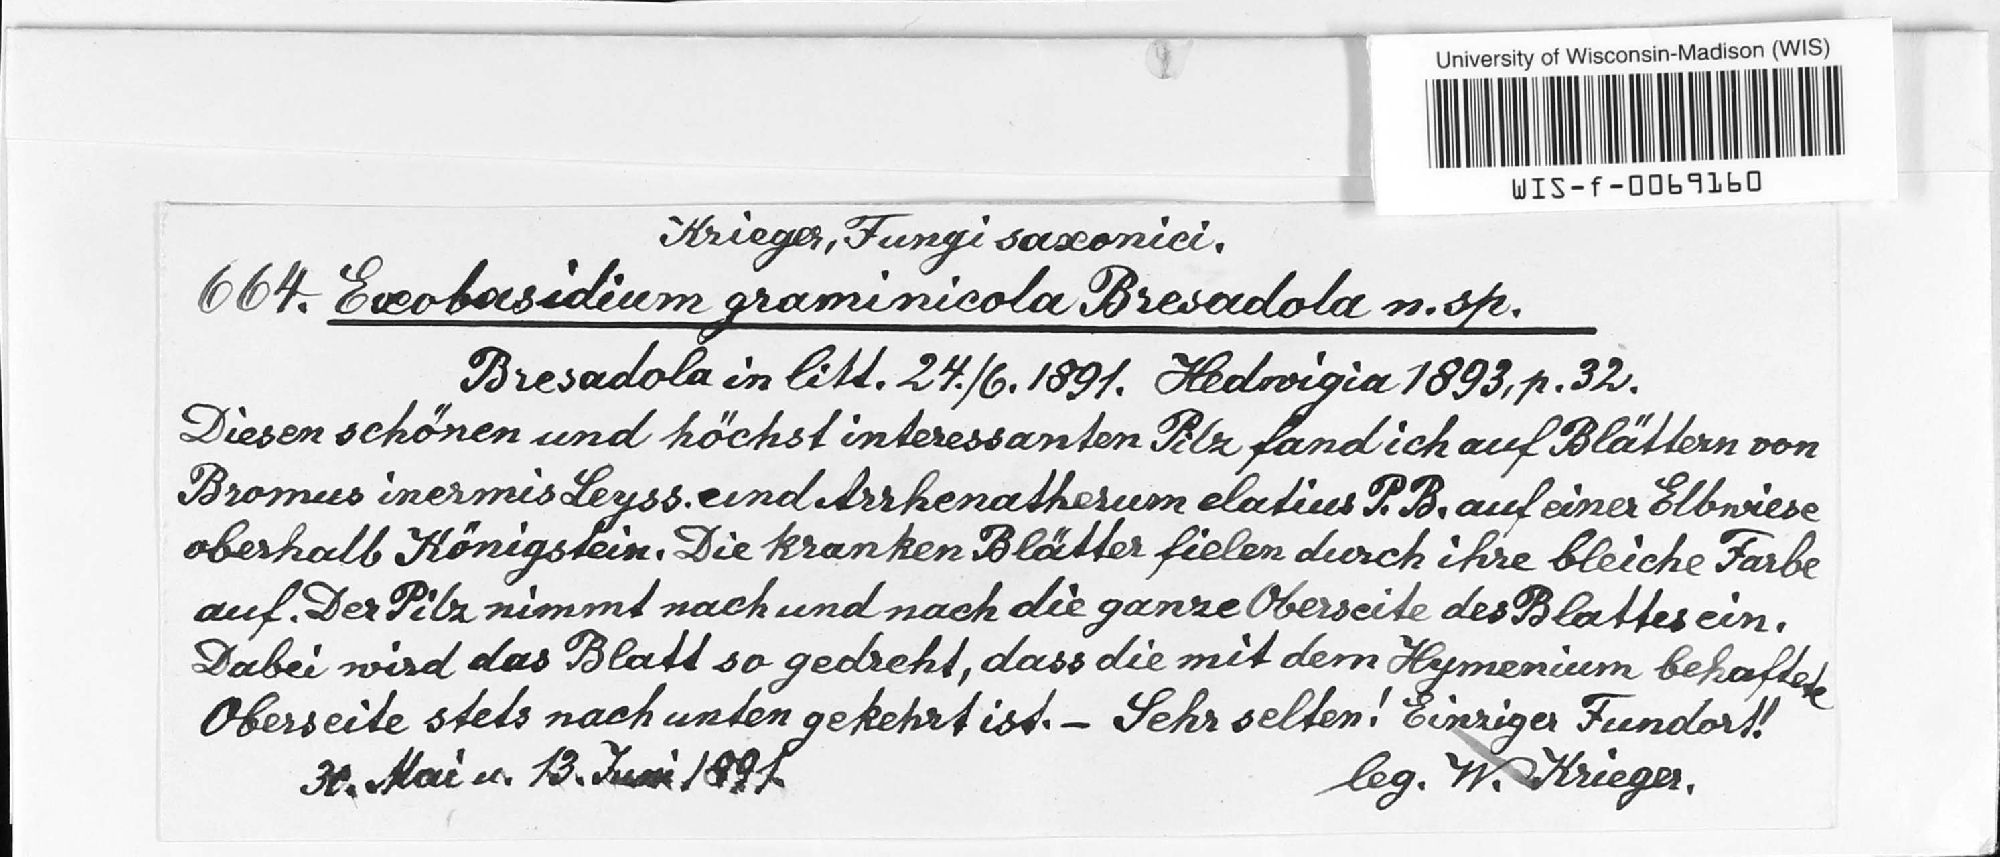 University of Wisconsin-Madison (WIS)
WIS-f-0069160
Krieger, Fungi saxonici.
664. Exobasidium graminicola Bresadola n. sp.
Bresadola in litt. 24./6. 1891. Hedwigia 1893, p. 32.
Diesen schönen und höchst interessanten Pilz fand ich auf Blättern von
Bromus inermis Leyss. und Arrhenatherum elatius P. B. auf einer Elbwiese
oberhalb Königstein. Die kranken Blätter fielen durch ihre bleiche Farbe
auf. Der Pilz nimmt nach und nach die ganze Oberseite des Blattes ein.
Dabei wird das Blatt so gedreht, dass die mit dem Hymenium behaftete
Oberseite stets nach unten gekehrt ist. – Sehr selten! Einziger Fundort!
Mai u. 13. Juni 1891.
leg. W. Krieger.